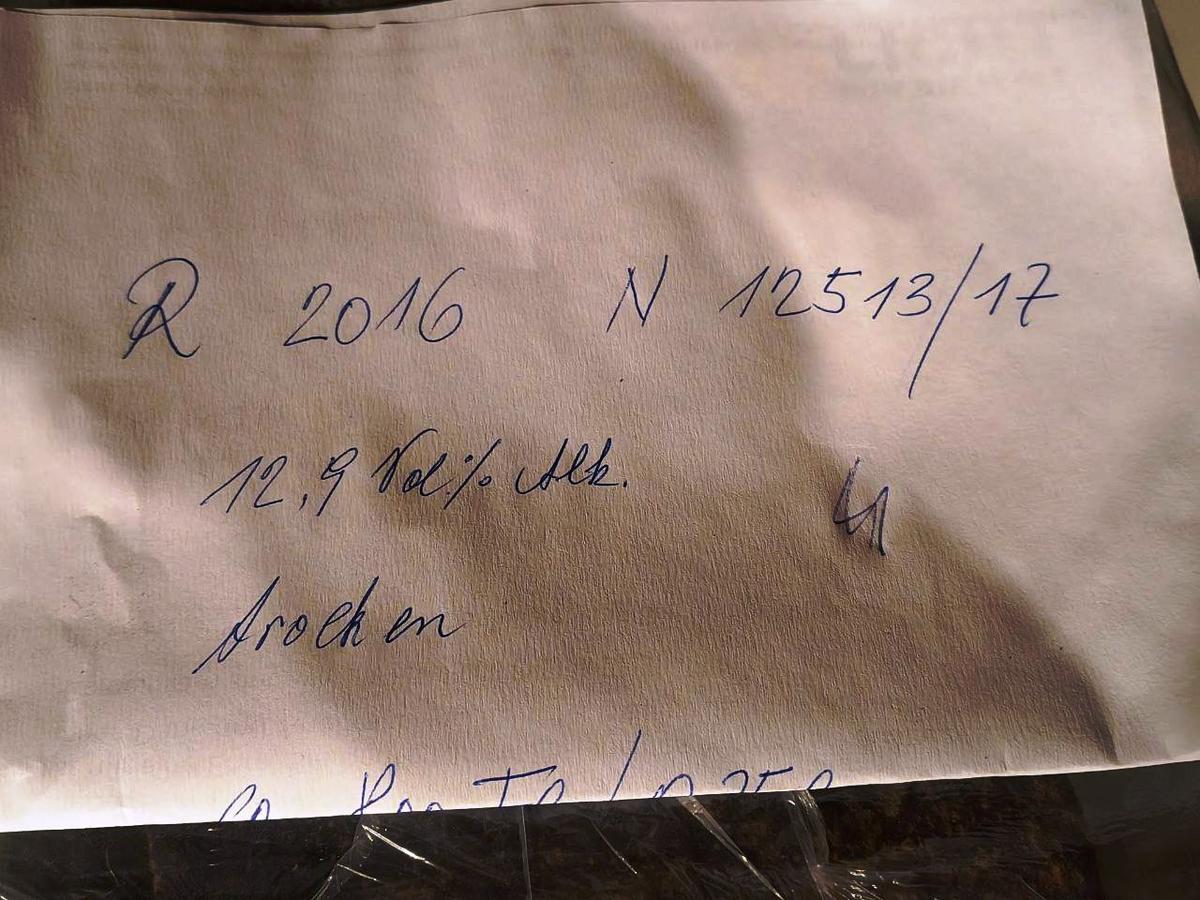 R 2016 N 12513/17
12,9 Vol.% Alk.
trocken